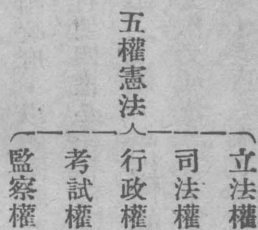 五權憲法
立法權
司法權
行政權
考試權
監察權